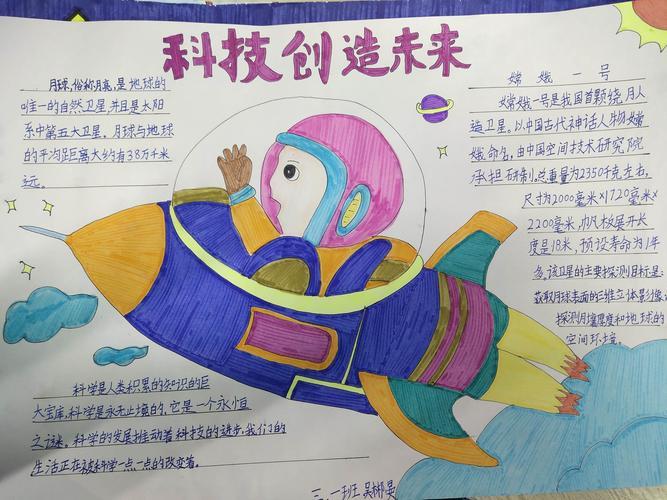 科技创造未来
月球,俗称月亮,是地球的
唯一的自然卫星,并且是太阳
系中第五大卫星。月球与地球
的平均距离大约有38万千米
远。
嫦娥一号
嫦娥一号是我国首颗绕月人
造卫星。以中国古代神话人物嫦
娥命名,由中国空间技术研究院
承担研制。总重量为2350千克左右,
尺寸为2000毫米X1720毫米X
2200毫米,帆板展开长
度是18米,预设寿命为1年
多,该卫星的主要探测目标是
获取月球表面的三维立体影像;
探测月壤厚度和地球的
空间环境。
科学是人类积累的知识的巨
大宝库,科学是永无止境的,它是一个永恒
之谜。科学的发展推动着科技的进步,我们的
生活正在被科学一点一点的改变着。
三、一班 吴彬